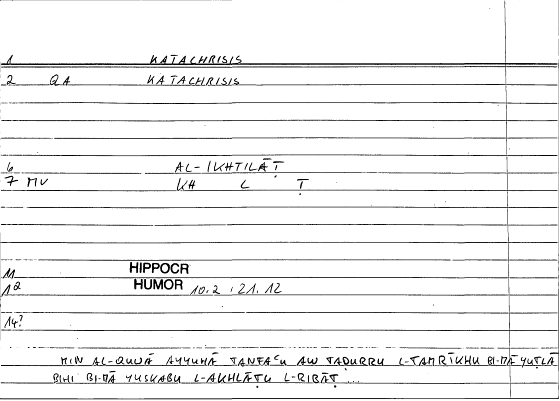 1 KATACHRISIS
2 QA KATACHRISIS
6 AL-IKHTILĀṬ
7 MV KH L Ṭ
11 HIPPOCR
12 HUMOR 10.2 : 21.12
14?
MIN AL-QUWĀ AYYUHĀ TANFAʿU AW TAḌURRU L-TAMRĪKHU BI-MĀ YUṬLĀ
BIHI BI-MĀ YUSKABU L-AKHLĀṬU L-RIBĀṬ ...